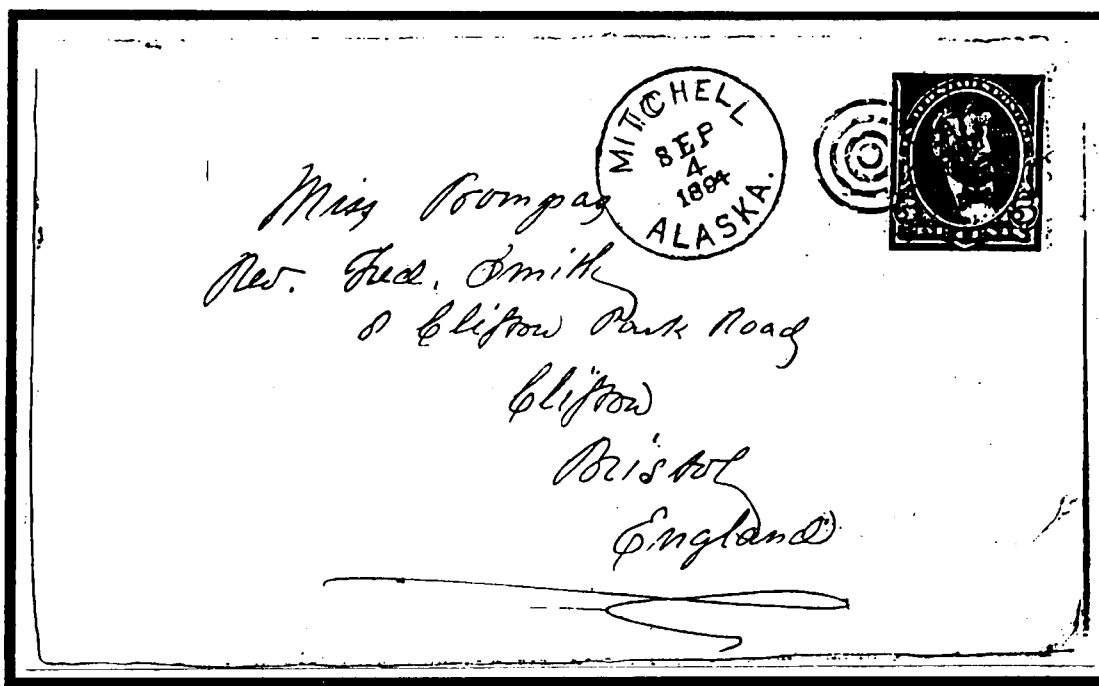 MITCHELL
SEP
4
1894
ALASKA.
5 5
Miss Bompas
Rev. Fred. Smith
8 Clifton Park Road
Clifton
Bristol
England